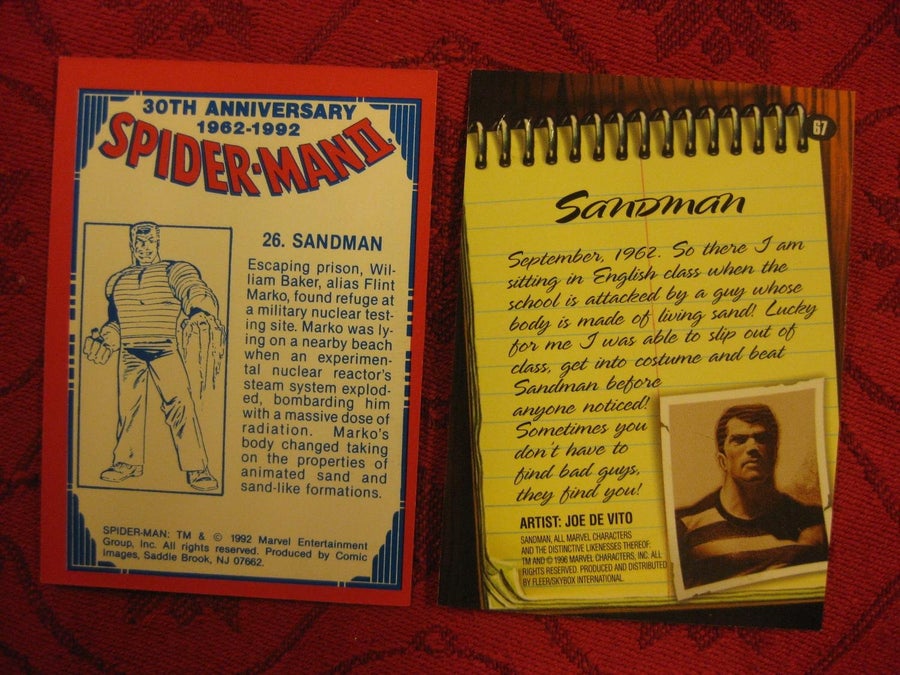 30TH ANNIVERSARY
1962-1992
SPIDER-MAN II
26. SANDMAN
Escaping prison, Wil-
liam Baker, alias Flint
Marko, found refuge at
a military nuclear test-
ing site. Marko was ly-
ing on a nearby beach
when an experimen-
tal nuclear reactor's
steam system explod-
ed, bombarding him
with a massive dose of
radiation. Marko's
body changed taking
on the properties of
animated sand and
sand-like formations.
SPIDER-MAN: TM & © 1992 Marvel Entertainment
Group, Inc. All rights reserved. Produced by Comic
Images, Saddle Brook, NJ 07662.
67
Sandman
September, 1962. So there I am
sitting in English class when the
school is attacked by a guy whose
body is made of living sand! Lucky
for me I was able to slip out of
class, get into costume and beat
Sandman before
anyone noticed!
Sometimes you
don't have to
find bad guys,
they find you!
ARTIST: JOE DE VITO
SANDMAN, ALL MARVEL CHARACTERS
AND THE DISTINCTIVE LIKENESSES THEREOF:
TM AND © 1996 MARVEL CHARACTERS, INC. ALL
RIGHTS RESERVED. PRODUCED AND DISTRIBUTED
BY FLEER/SKYBOX INTERNATIONAL.